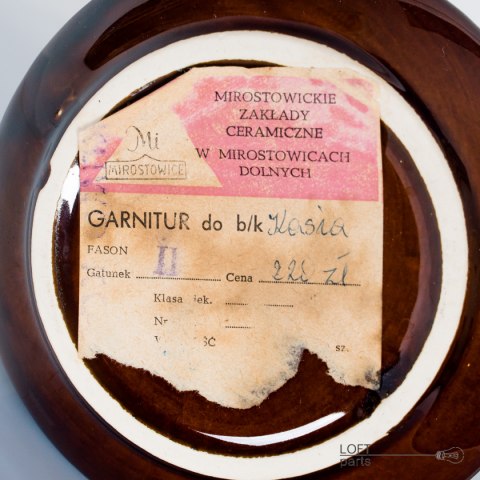 MIROSTOWICKIE
ZAKŁADY
CERAMICZNE
W MIROSTOWICACH
DOLNYCH
Mi
MIROSTOWICE
GARNITUR do b/k Kasia
FASON
Gatunek II Cena 220 zł
Klasa jek.
Nr
sz.
LOFT
parts